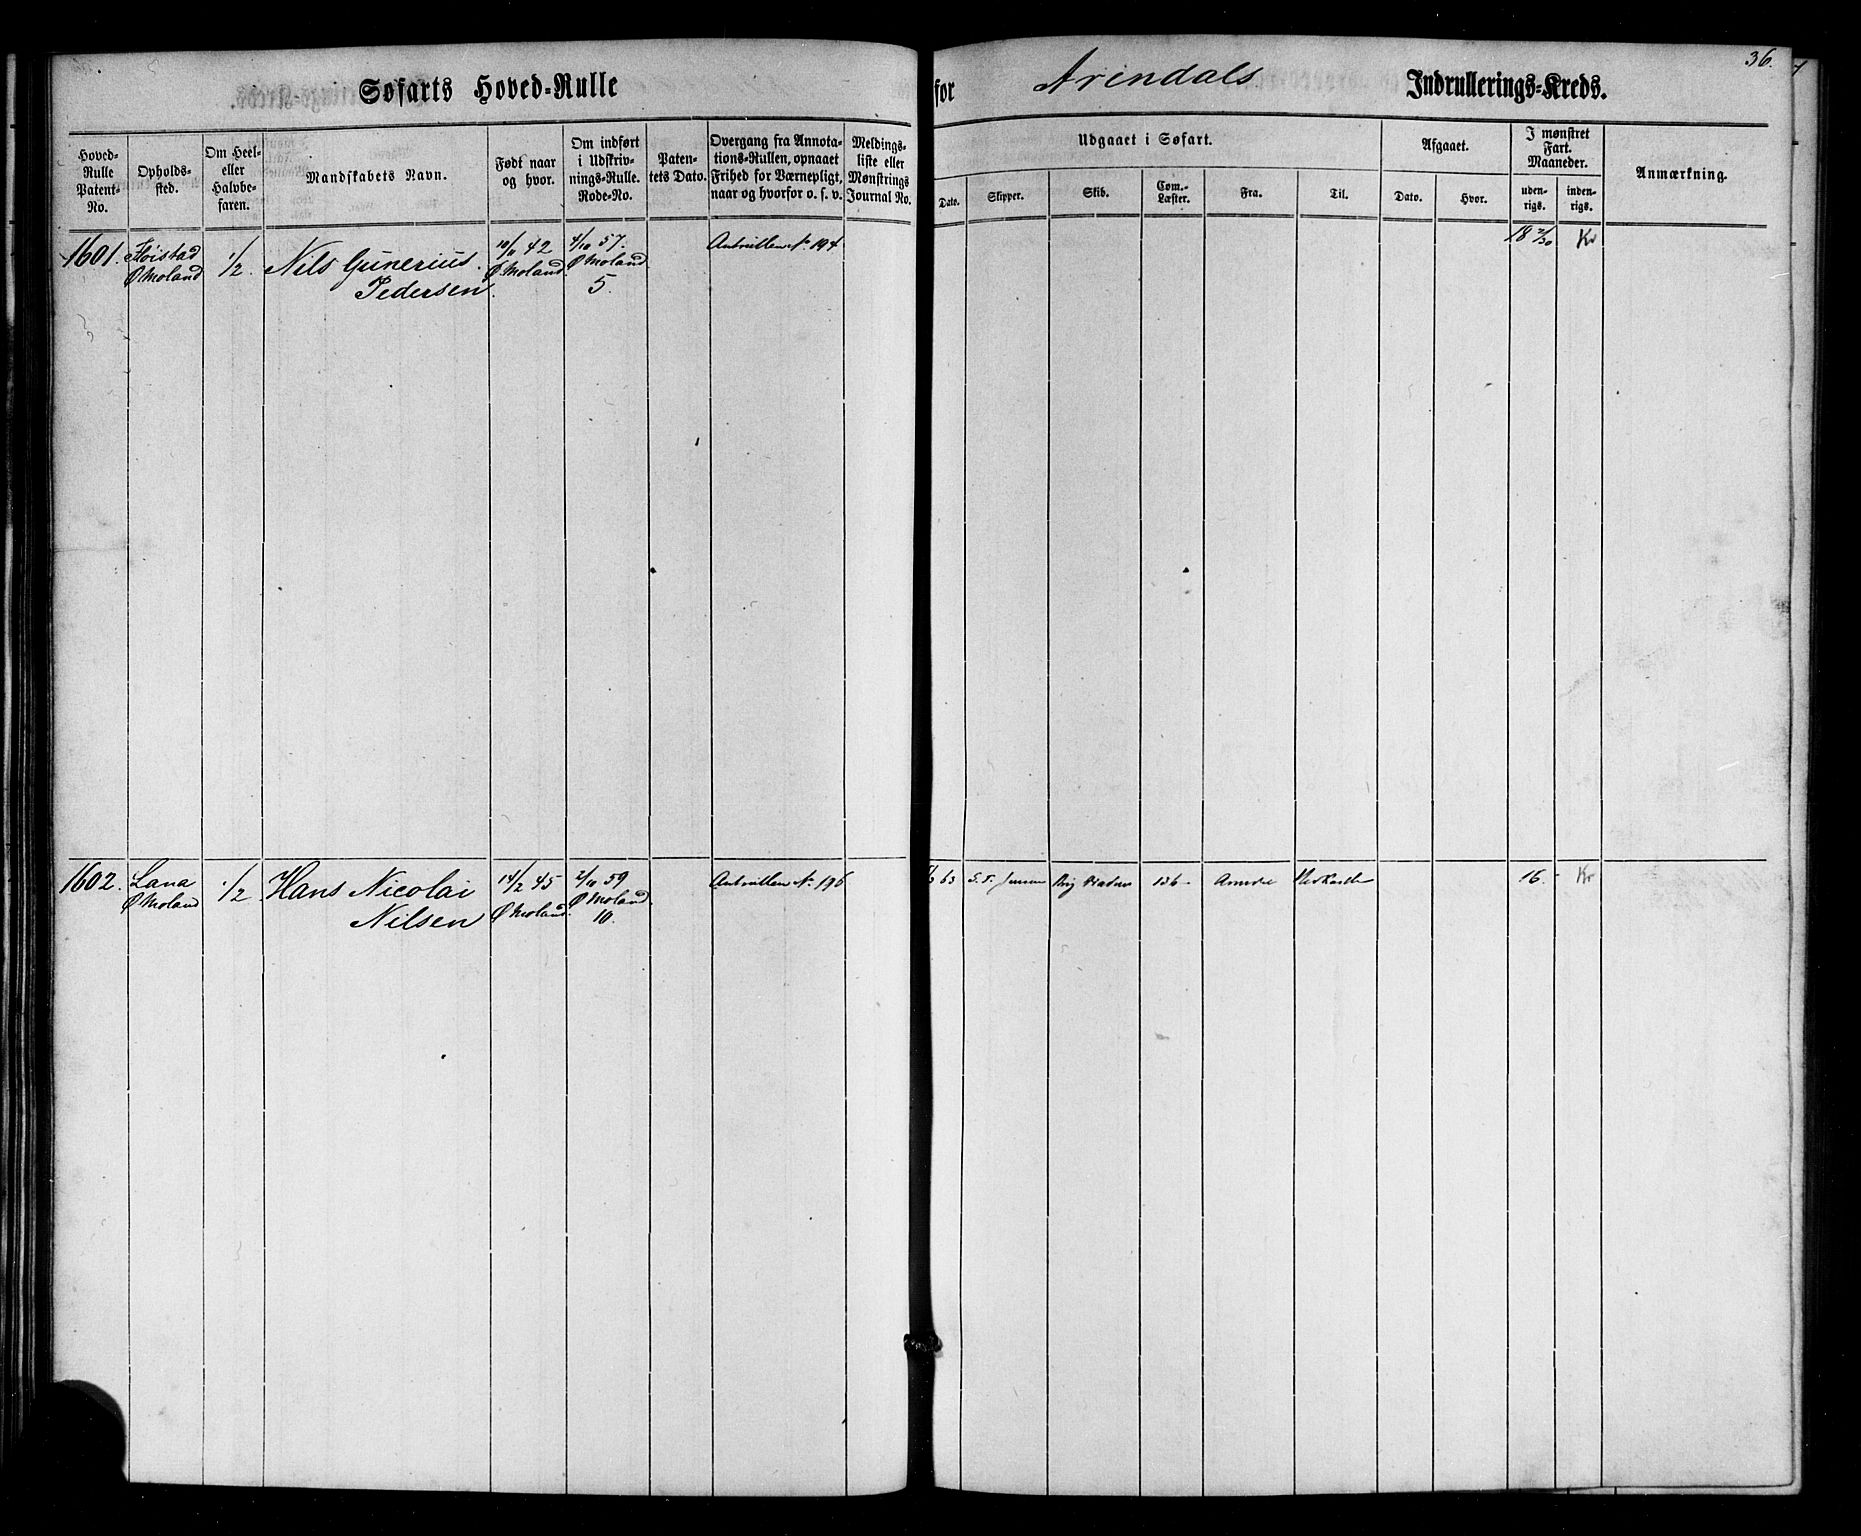 36.
Søfarts Hoved-Rulle for Arendals Indrullerings-Kreds.
Hoved-Rulle Patent-No.
Opholds-sted.
Om Heel- eller Halvbe-faren.
Mandskabets Navn.
Født naar og hvor.
Om indført i Udskriv-nings-Rulle. Rode-No.
Paten-tets Dato.
Overgang fra Annota-tions-Rullen, opnaaet Frihed for Værnepligt, naar og hvorfor o. s. v.
Meldings-liste eller Mønstrings Journal No.
Udgaaet i Søfart.
Dato.
Skipper.
Skib.
Com.-Læster.
Fra.
Til.
Afgaaet.
Dato.
Hvor.
I mønstret Fart. Maaneder.
uden-rigs.
inden-rigs.
Anmærkning.
1601. Fløistad 1/2 Nils Gunerius 10/11 42 4/10 57. No 194 18 2/30
Ø Moland Pedersen Ø Moland Ø Moland
5.
1602. Lana 1/2 Hans Nicolai 14/2 45 2/10 59 No 196 63 Jensen Brig 136 16
Ø Moland Nilsen Ø Moland Ø Moland
10.